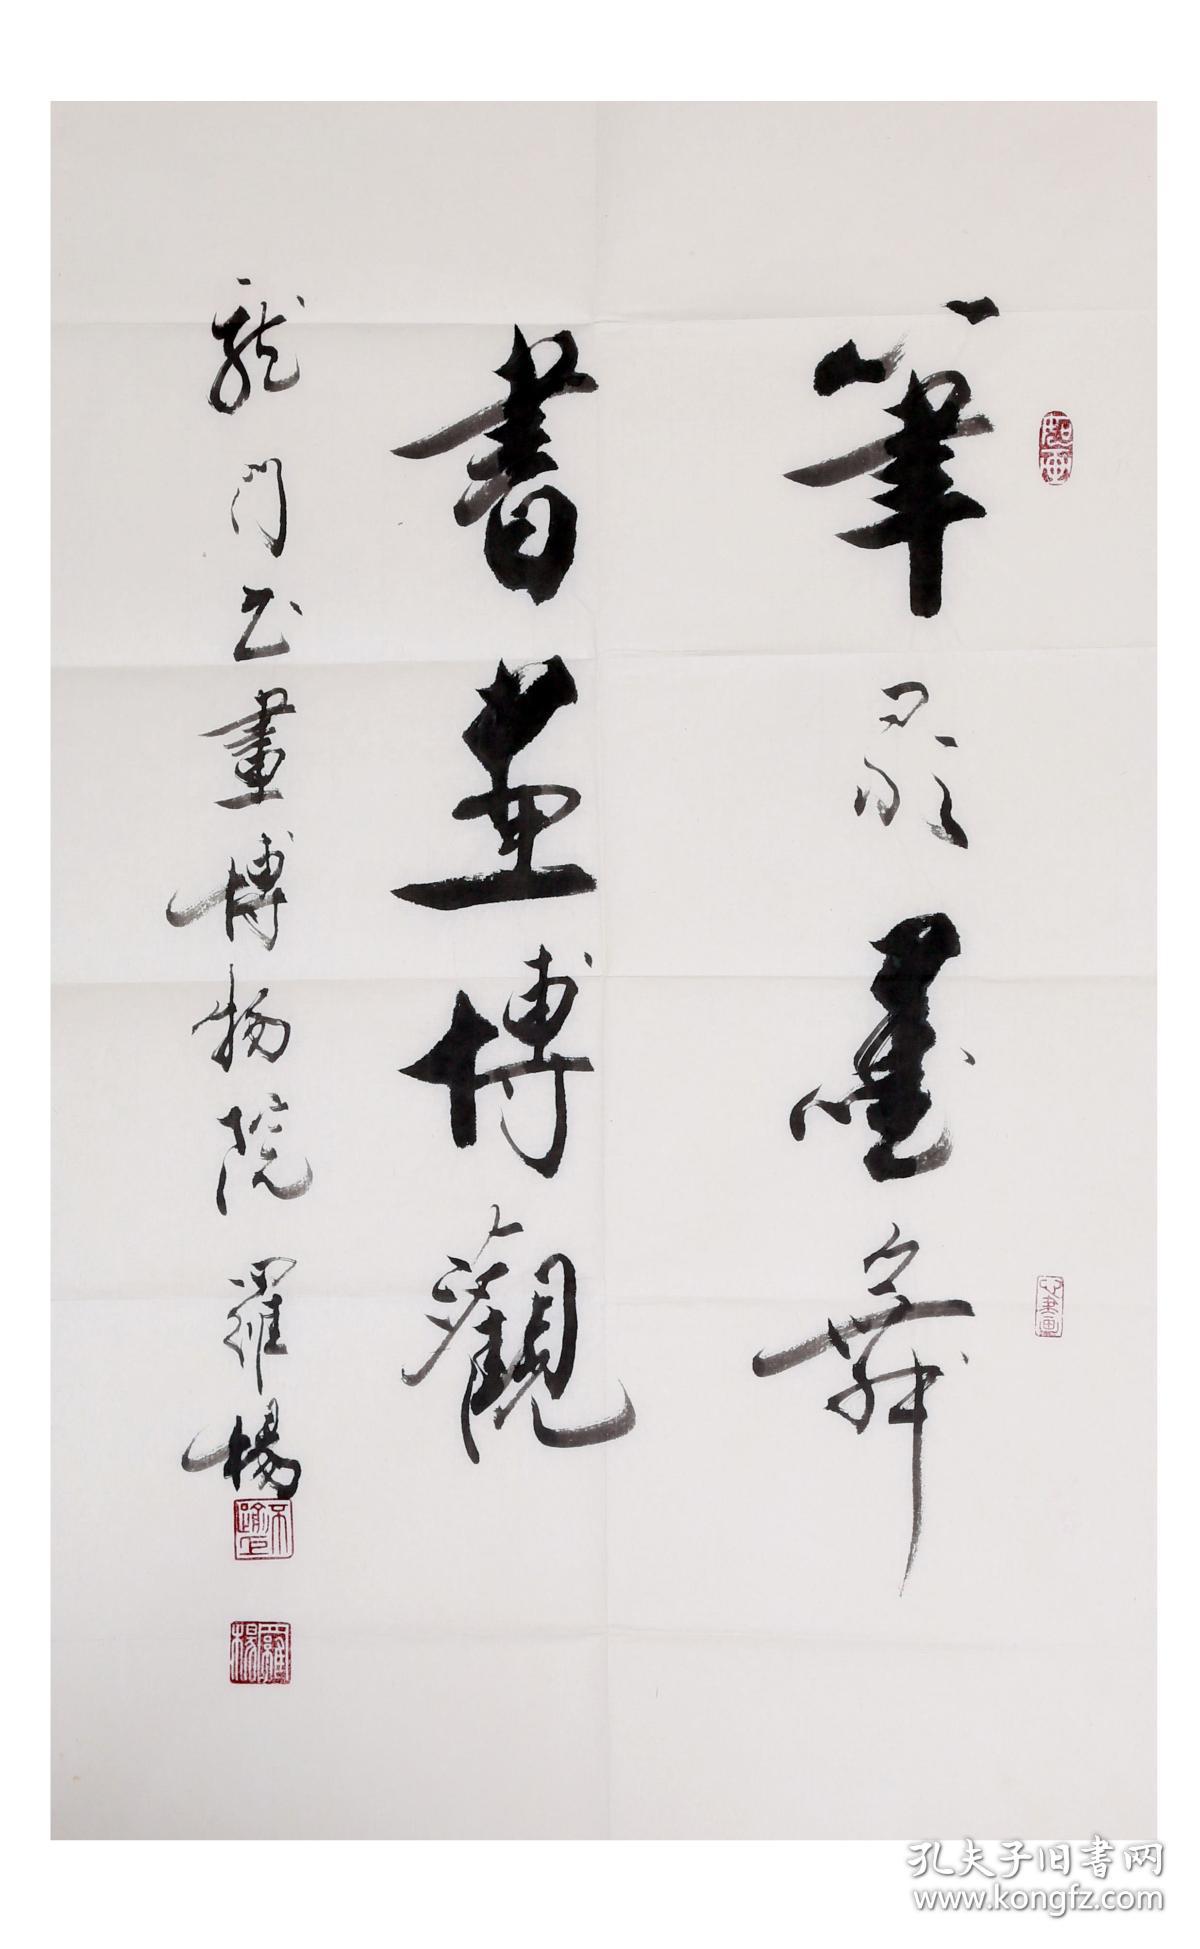 筆歌墨舞
書畫博觀
龍門书畫博物院 羅楊
羅楊
孔夫子旧書网
www.kongfz.com